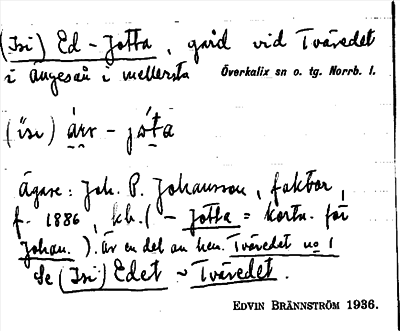 (Isi) Ed-Jotta, gård vid Tväredet
i Ängeså i mellersta Överkalix sn o. tg. Norrb. l.
( isi ) árr - jóta
Ägare: Joh. P. Johansson, faktor,
f. 1886, kh. ( - Jotta = kortn. för
Johan. ). Är en del av hem. Tväredet no 1
Se (Isi) Edet ~ Tväredet.
EDVIN BRÄNNSTRÖM 1936.